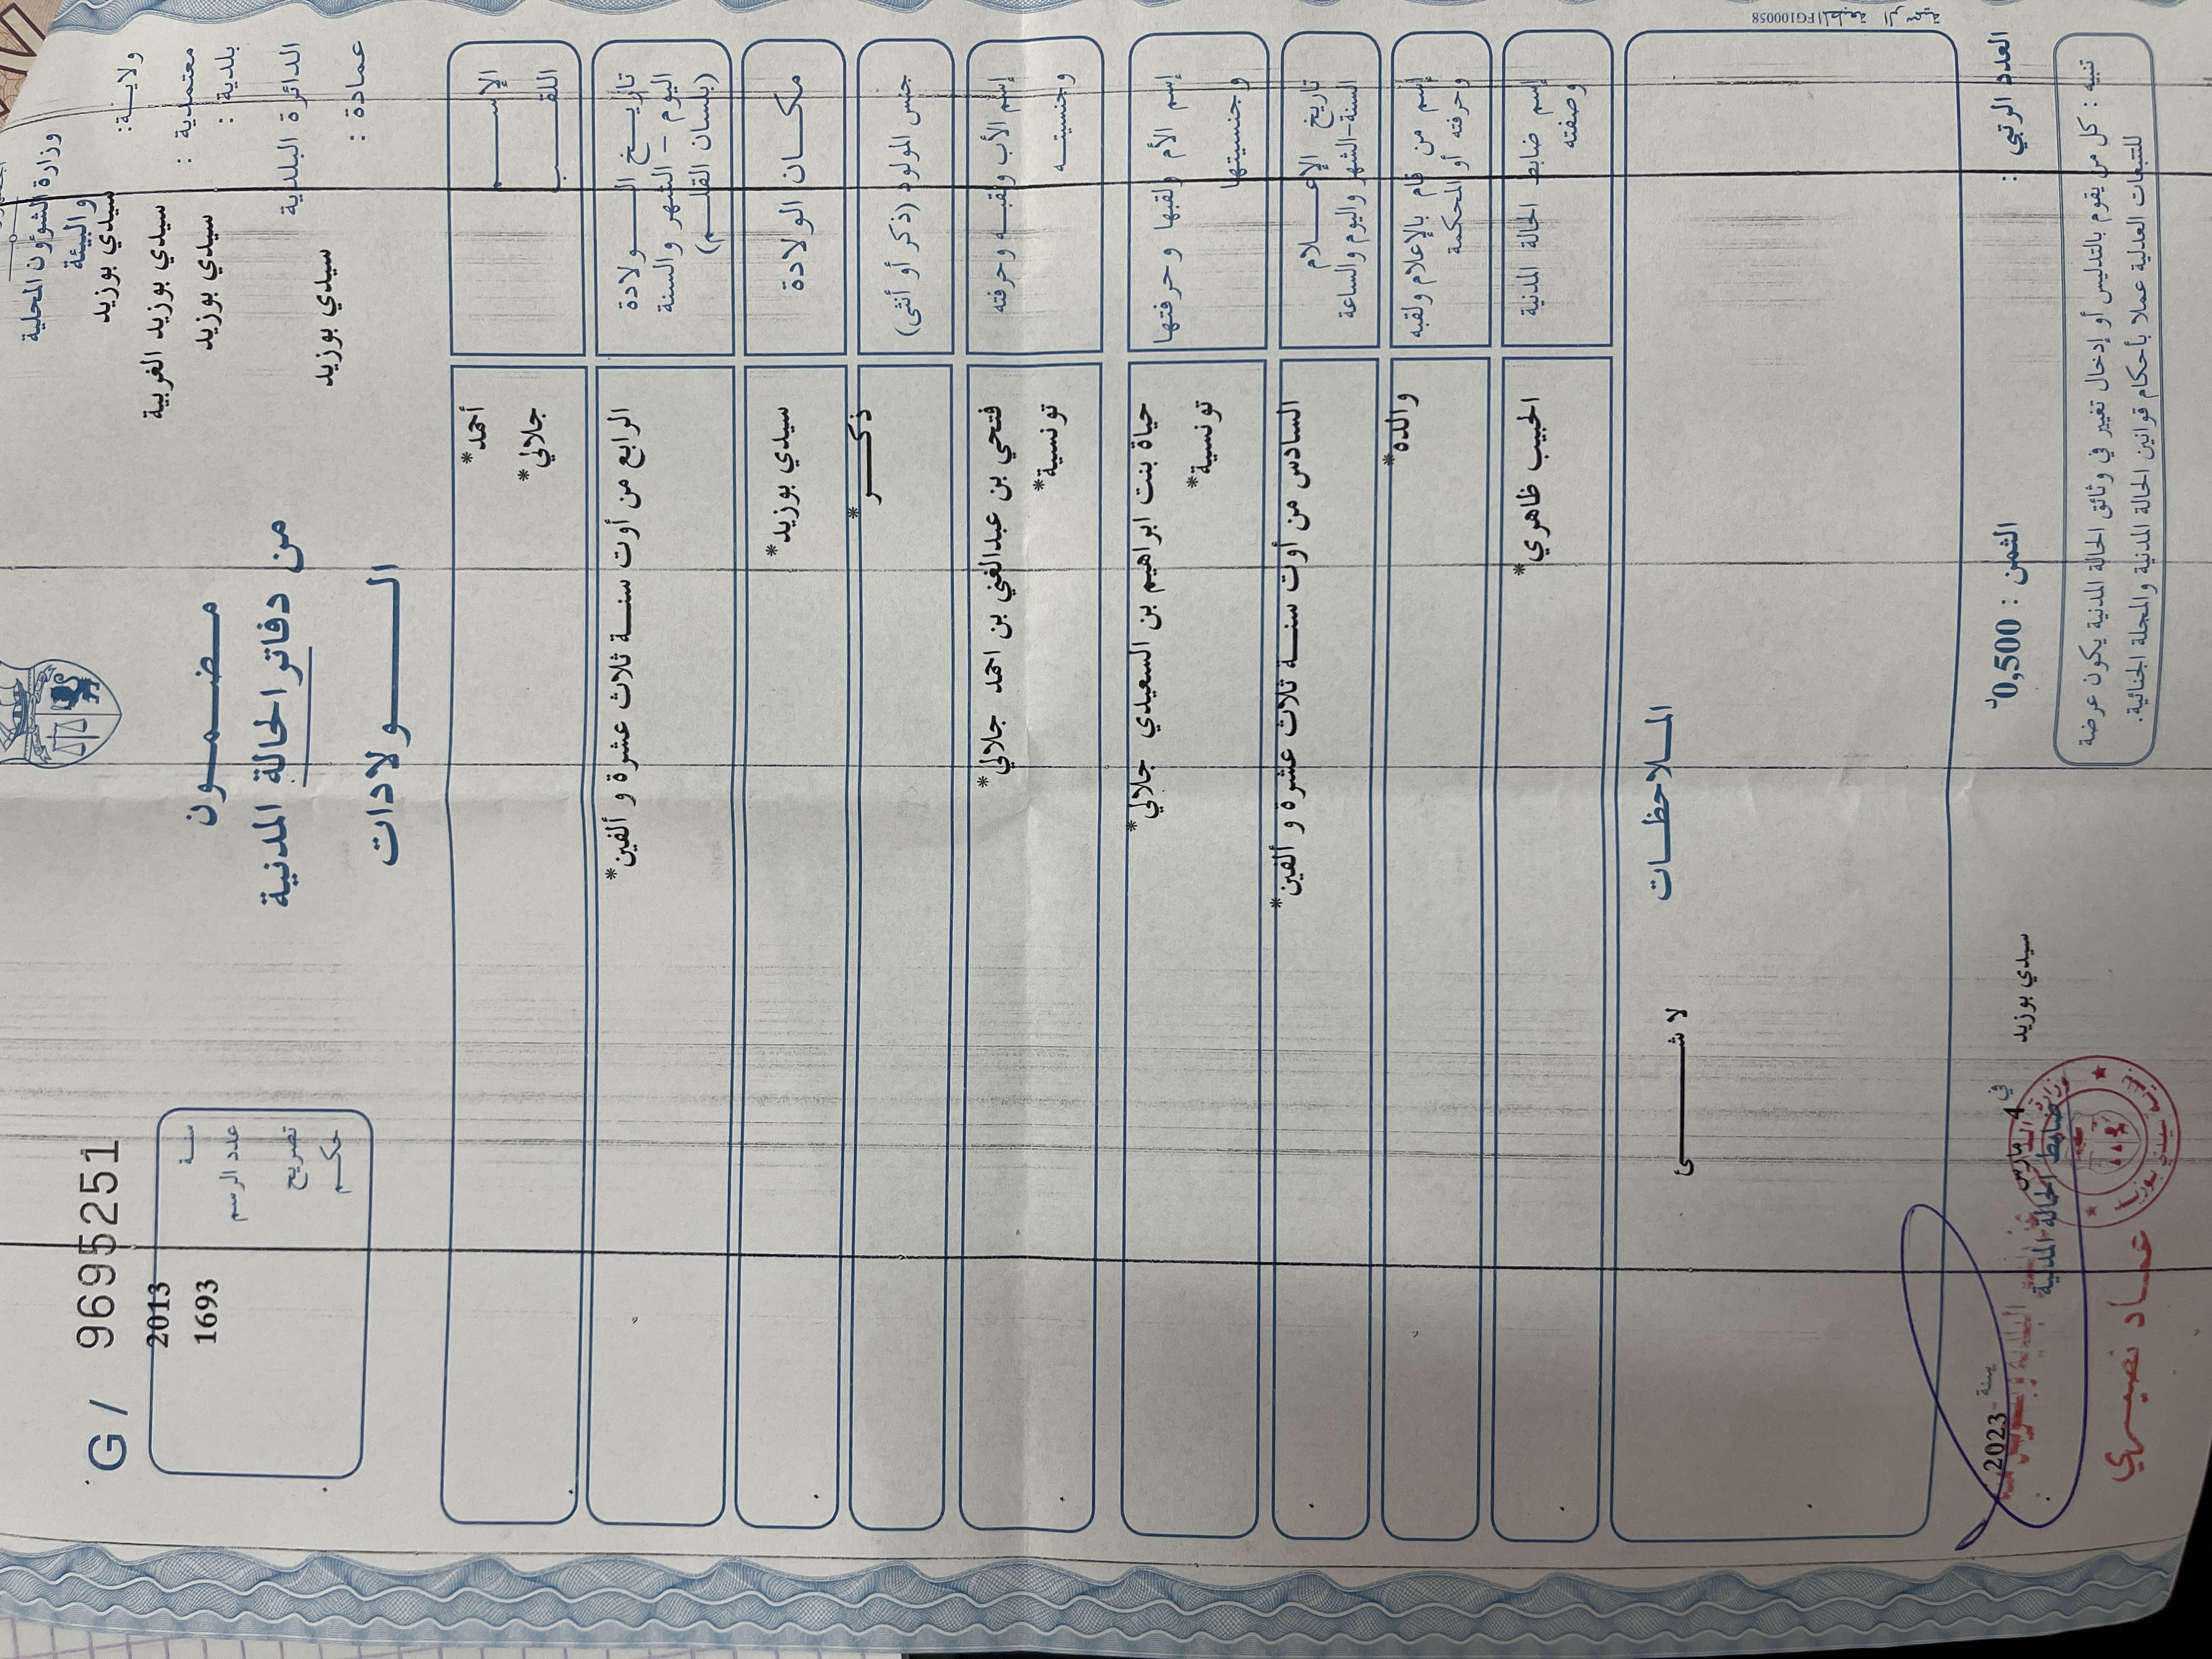 وزارة الشؤون المحلية
والبيئة
ولايـــة: سيدي بوزيد
معتمدية : سيدي بوزيد الغربية
بلدية : سيدي بوزيد
الدائرة البلدية
عمادة : سيدي بوزيد
مضـــمـــون
من دفاتر الحالة المدنية
الـــــولادات
G/ 9695251
سنـــة 2013
عدد الرسم 1693
تصريح
حكـــم
الإســـــم أحمد*
اللقـــــب جلالي*
تاريـــخ الـــــولادة الرابع من أوت سنـــة ثلاث عشرة و ألفين*
اليوم - الشهر والسنة
(بلسان القلـــم)
مكـــان الولادة سيدي بوزيد*
جنس المولود (ذكر أو أنثى) ذكـــر*
إسم الأب ولقبـــه وحرفته فتحي بن عبدالغني بن احمد جلالي*
وجنسيتـــه تونسية*
إسم الأم ولقبها وحرفتها حياة بنت ابراهيم بن السعيدي جلالي*
وجنسيتها تونسية*
تاريخ الإعـــــلام السادس من أوت سنـــة ثلاث عشرة و ألفين*
السنة-الشهر واليوم والساعة
إسم من قام بالإعلام ولقبه والده*
وحرفته أو المحكمة
إسم ضابط الحالة المدنية الحبيب ظاهري*
وصفته
المـــلاحظـــات
لا شـــــئ
العدد الرتبي :
الثمن : 0,500د
سيدي بوزيد في 4 مارس سنة 2023
ضابط الحالة المدنية
عمـــاد نصيـــري
تنبيه : كل من يقوم بالتدليس أو إدخال تغيير في وثائق الحالة المدنية يكون عرضة
للتتبعات العدلية عملا بأحكام قوانين الحالة المدنية والمجلة الجنائية.
FG100058